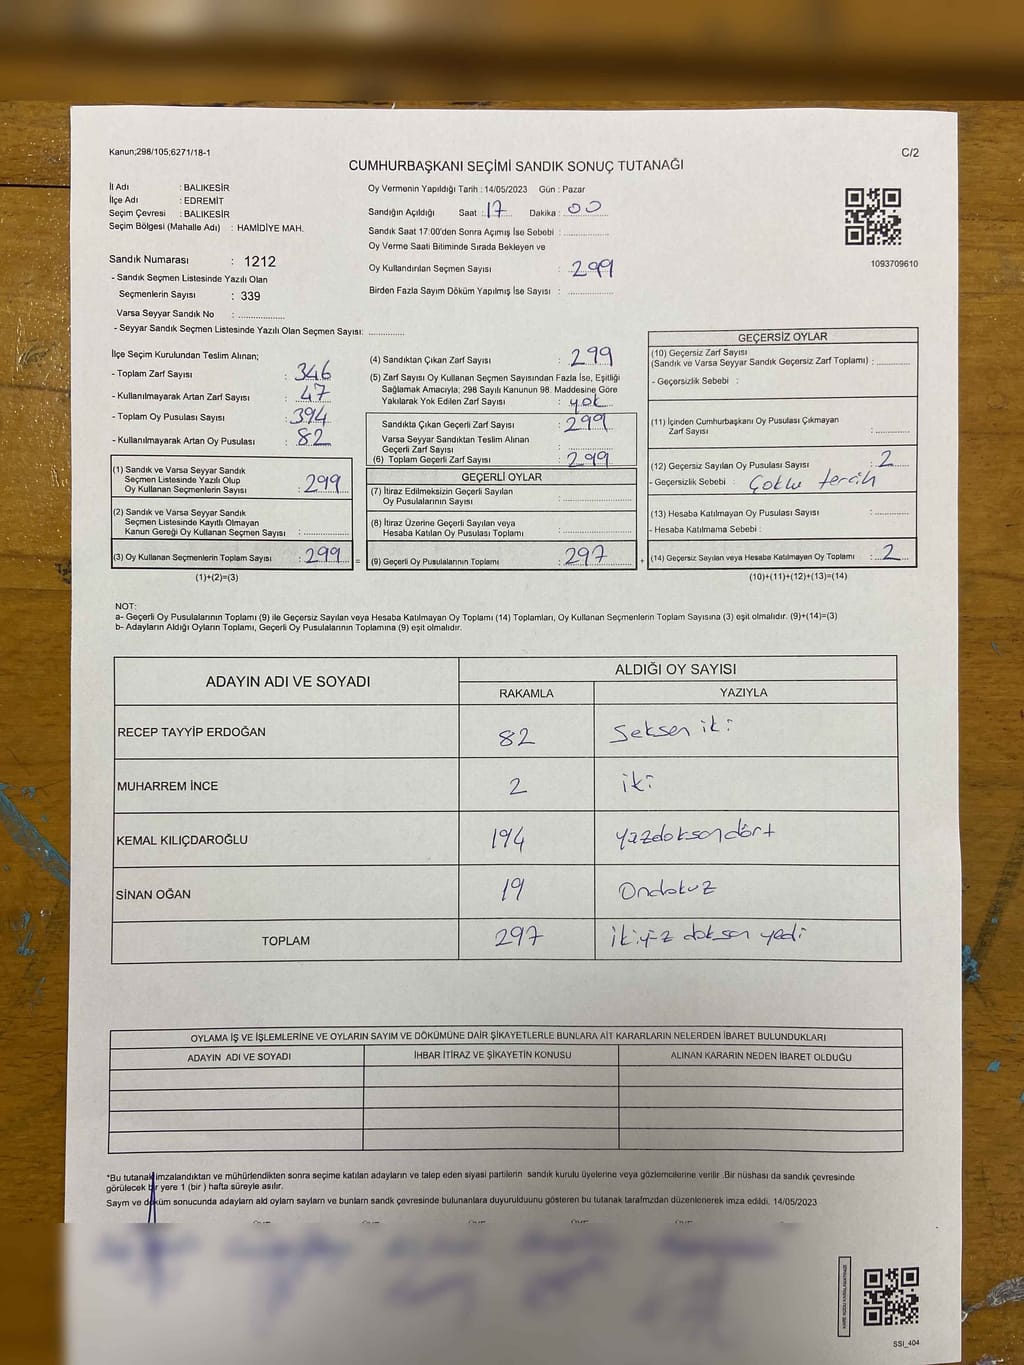 Kanun;298/105;6271/18-1
C/2
CUMHURBAŞKANI SEÇİMİ SANDIK SONUÇ TUTANAĞI
İl Adı : BALIKESİR
İlçe Adı : EDREMİT
Seçim Çevresi : BALIKESİR
Seçim Bölgesi (Mahalle Adı) : HAMİDİYE MAH.
Sandık Numarası : 1212
- Sandık Seçmen Listesinde Yazılı Olan
Seçmenlerin Sayısı : 339
Varsa Seyyar Sandık No : ................
- Seyyar Sandık Seçmen Listesinde Yazılı Olan Seçmen Sayısı: ............
Oy Vermenin Yapıldığı Tarih : 14/05/2023 Gün : Pazar
Sandığın Açıldığı Saat : 17 Dakika : 00
Sandık Saat 17:00'den Sonra Açımış İse Sebebi : ................
Oy Verme Saati Bitiminde Sırada Bekleyen ve
Oy Kullandırılan Seçmen Sayısı : 299
Birden Fazla Sayım Döküm Yapılmış İse Sayısı : ................
1093709610
İlçe Seçim Kurulundan Teslim Alınan;
- Toplam Zarf Sayısı : 346
- Kullanılmayarak Artan Zarf Sayısı : 47
- Toplam Oy Pusulası Sayısı : 394
- Kullanılmayarak Artan Oy Pusulası : 82
(1) Sandık ve Varsa Seyyar Sandık
Seçmen Listesinde Yazılı Olup
Oy Kullanan Seçmenlerin Sayısı : 299
(2) Sandık ve Varsa Seyyar Sandık
Seçmen Listesinde Kayıtlı Olmayan
Kanun Gereği Oy Kullanan Seçmen Sayısı : ................
(3) Oy Kullanan Seçmenlerin Toplam Sayısı : 299 =
(1)+(2)=(3)
(4) Sandıktan Çıkan Zarf Sayısı : 299
(5) Zarf Sayısı Oy Kullanan Seçmen Sayısından Fazla İse, Eşitliği
Sağlamak Amacıyla; 298 Sayılı Kanunun 98. Maddesine Göre
Yakılarak Yok Edilen Zarf Sayısı : yok
Sandıkta Çıkan Geçerli Zarf Sayısı : 299
Varsa Seyyar Sandıktan Teslim Alınan
Geçerli Zarf Sayısı : ................
(6) Toplam Geçerli Zarf Sayısı : 299
GEÇERLİ OYLAR
(7) İtiraz Edilmeksizin Geçerli Sayılan
Oy Pusulalarının Sayısı : ................
(8) İtiraz Üzerine Geçerli Sayılan veya
Hesaba Katılan Oy Pusulası Toplamı : ................
(9) Geçerli Oy Pusulalarının Toplamı : 297 +
GEÇERSİZ OYLAR
(10) Geçersiz Zarf Sayısı
(Sandık ve Varsa Seyyar Sandık Geçersiz Zarf Toplamı) : ............
- Geçersizlik Sebebi :
(11) İçinden Cumhurbaşkanı Oy Pusulası Çıkmayan
Zarf Sayısı : ............
(12) Geçersiz Sayılan Oy Pusulası Sayısı : 2
- Geçersizlik Sebebi : Çoklu tercih
(13) Hesaba Katılmayan Oy Pusulası Sayısı : ............
- Hesaba Katılmama Sebebi :
(14) Geçersiz Sayılan veya Hesaba Katılmayan Oy Toplamı : 2
(10)+(11)+(12)+(13)=(14)
NOT:
a- Geçerli Oy Pusulalarının Toplamı (9) ile Geçersiz Sayılan veya Hesaba Katılmayan Oy Toplamı (14) Toplamları, Oy Kullanan Seçmenlerin Toplam Sayısına (3) eşit olmalıdır. (9)+(14)=(3)
b- Adayların Aldığı Oyların Toplamı, Geçerli Oy Pusulalarının Toplamına (9) eşit olmalıdır.
ADAYIN ADI VE SOYADI
ALDIĞI OY SAYISI
RAKAMLA YAZIYLA
RECEP TAYYİP ERDOĞAN 82 Seksen iki
MUHARREM İNCE 2 iki
KEMAL KILIÇDAROĞLU 194 yüzdoksandört
SİNAN OĞAN 19 Ondokuz
TOPLAM 297 ikiyüz doksan yedi
OYLAMA İŞ VE İŞLEMLERİNE VE OYLARIN SAYIM VE DÖKÜMÜNE DAİR ŞİKAYETLERLE BUNLARA AİT KARARLARIN NELERDEN İBARET BULUNDUKLARI
ADAYIN ADI VE SOYADI İHBAR İTİRAZ VE ŞİKAYETİN KONUSU ALINAN KARARIN NEDEN İBARET OLDUĞU
*Bu tutanak imzalandıktan ve mühürlendikten sonra seçime katılan adayların ve talep eden siyasi partilerin sandık kurulu üyelerine veya gözlemcilerine verilir .Bir nüshası da sandık çevresinde
görülecek bir yere 1 (bir ) hafta süreyle asılır.
Sayım ve döküm sonucunda adayların ald oyların sayları ve bunların sandk çevresinde bulunanlara duyurulduunu gösteren bu tutanak tarafmzdan düzenlenerek imza edildi. 14/05/2023
SSI_404